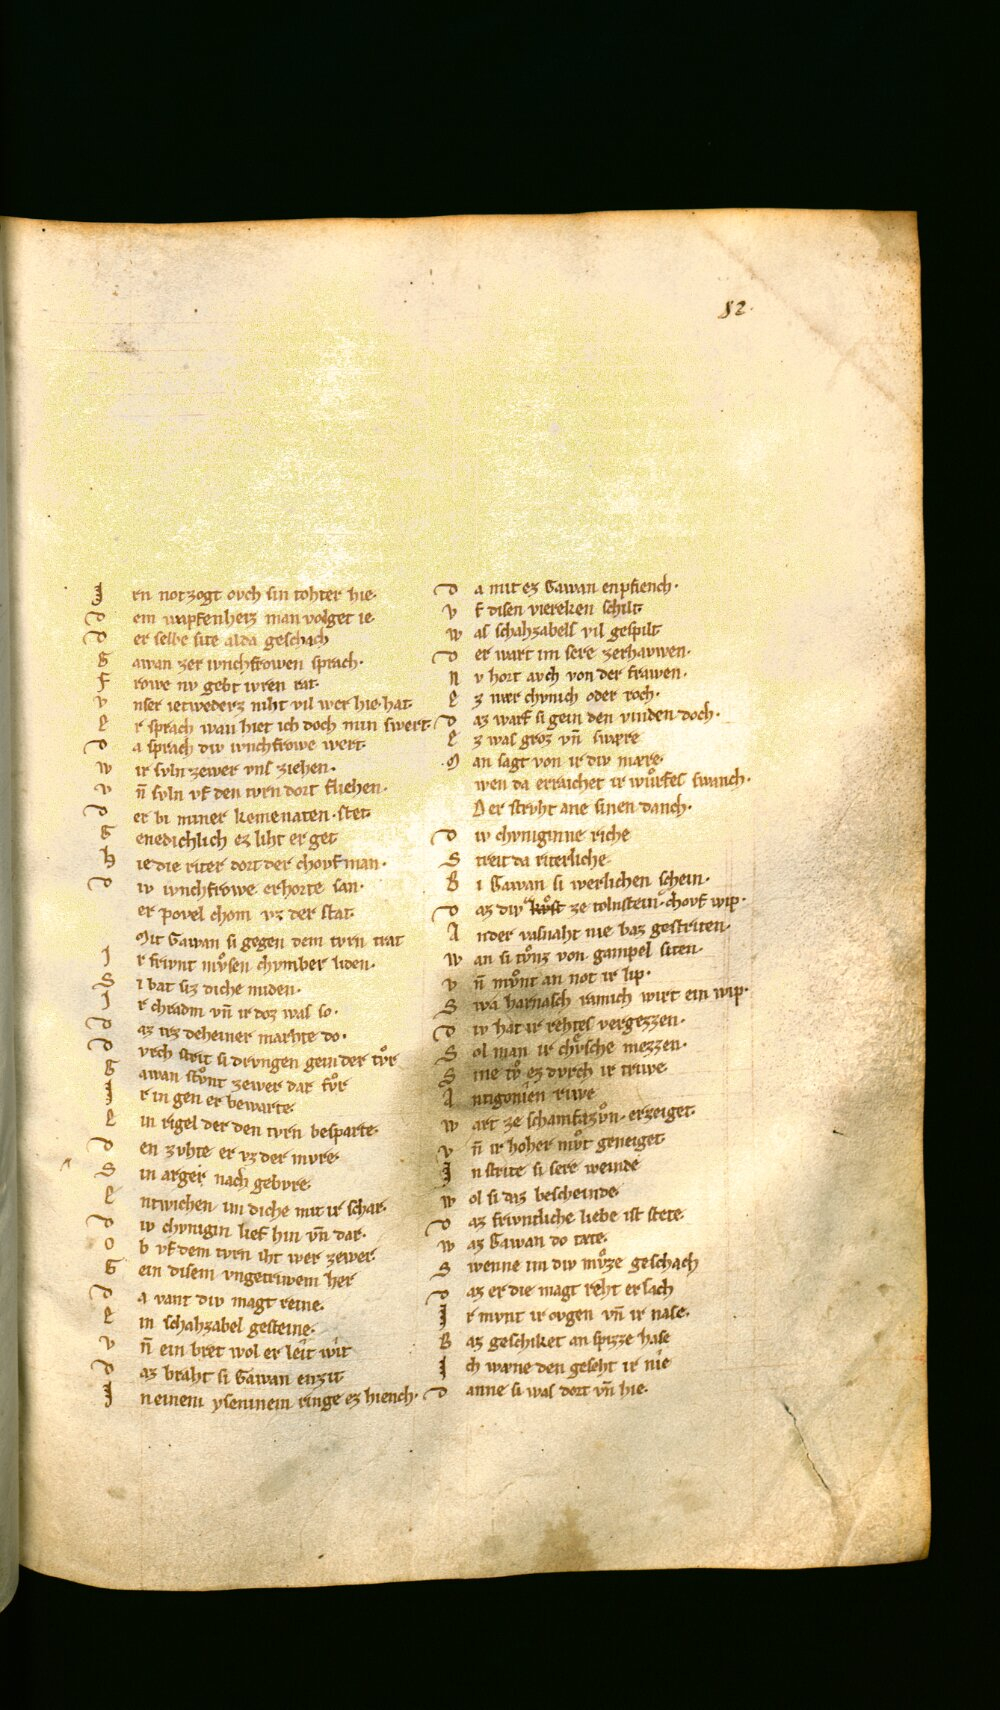 82.
J rn notzogt ovch sin tohter hie·
D em wapfenherz man volget ie
D er selbe site alda geschach
G awan zer ivnchfrowen sprach·
F rowe nv gebt iwren rat·
V nser ietweders niht vil wer hie hat·
E r sprach wan hiet ich doch min swert·
D a sprach div ivnchfrowe wert·
W ir svln zewer vns ziehen·
V n̄ svln vf den tvrn dort fliehen·
D er bi miner kemenaten stet·
G enedichlich ez liht er get
H ie die riter dort der chovfman·
D iv ivnchfrowe erhorte san·
er povel chom vz der stat·
Mit Gawan si gegen dem tvrn trat
J r frivnt mvͦsen chvmber liden·
S i bat siz diche miden·
J r chradm vn̄ ir doz was so·
D az irz deheiner marhte do·
D vrch strit si drvngen gein der tvͦr
G awan stvͦnt zewer dar fvͦr
J r in gen er bewarte·
E in rigel der den tvrn besparte·
D en zvhte er vz der mvre·
S in arger nach gebvre·
E ntwichen im diche mit ir schar·
D iv chvnigin lief hin vn̄ dar·
O b vf dem tvrn iht wer zewer·
G ein disem vngetriwem her
D a vant div magt reine·
E in schahzabel gesteine·
V n̄ ein bret wol er leit wit
D az braht si Gawan enzit
J n einem yseninem ringe ez hiench·
D a mit ez Gawan enpfiench·
V f disen viereken schilt
W as schahzabels vil gespilt
D er wart im sere zerhavwen·
N v hort avch von der frawen·
E z wær chvnich oder roch·
D az warf si gein den vinden doch·
E z was groz vn̄ swære
M an sagt von ir div mære·
wen da erraichet ir wvͦrfes swanch·
Der strvht ane sinen danch·
D iv chvniginne riche
S treit da riterliche·
B i Gawan si werlichen schein·
D az div kvͦst ze tolnstein chovf wip·
A n der vasnaht nie baz gestriten·
W an si tvͦnz von gampel siten·
V n̄ mvͦnt an not ir lip·
S wa harnasch ramich wirt ein wip·
D iv hat ir rehtes vergezzen·
S ol man ir chvͤsche mezzen·
S ine tvͦ ez dvrch ir triwe
A ntigonien rivve
W art ze schamfazvͦn erzeiget·
V n̄ ir hoher mvͦt geneiget
J n strite si sere weinde
W ol si daz bescheinde
D az frivntliche liebe ist stete·
W az Gawan do tæte·
S wenne im div mvͦze geschach
D az er die magt reht ersach
J r mvnt ir ovgen vn̄ ir nase·
B az geschiket an spizze hase
J ch wæne den gesaht ir nie
D anne si was dort vn̄ hie·